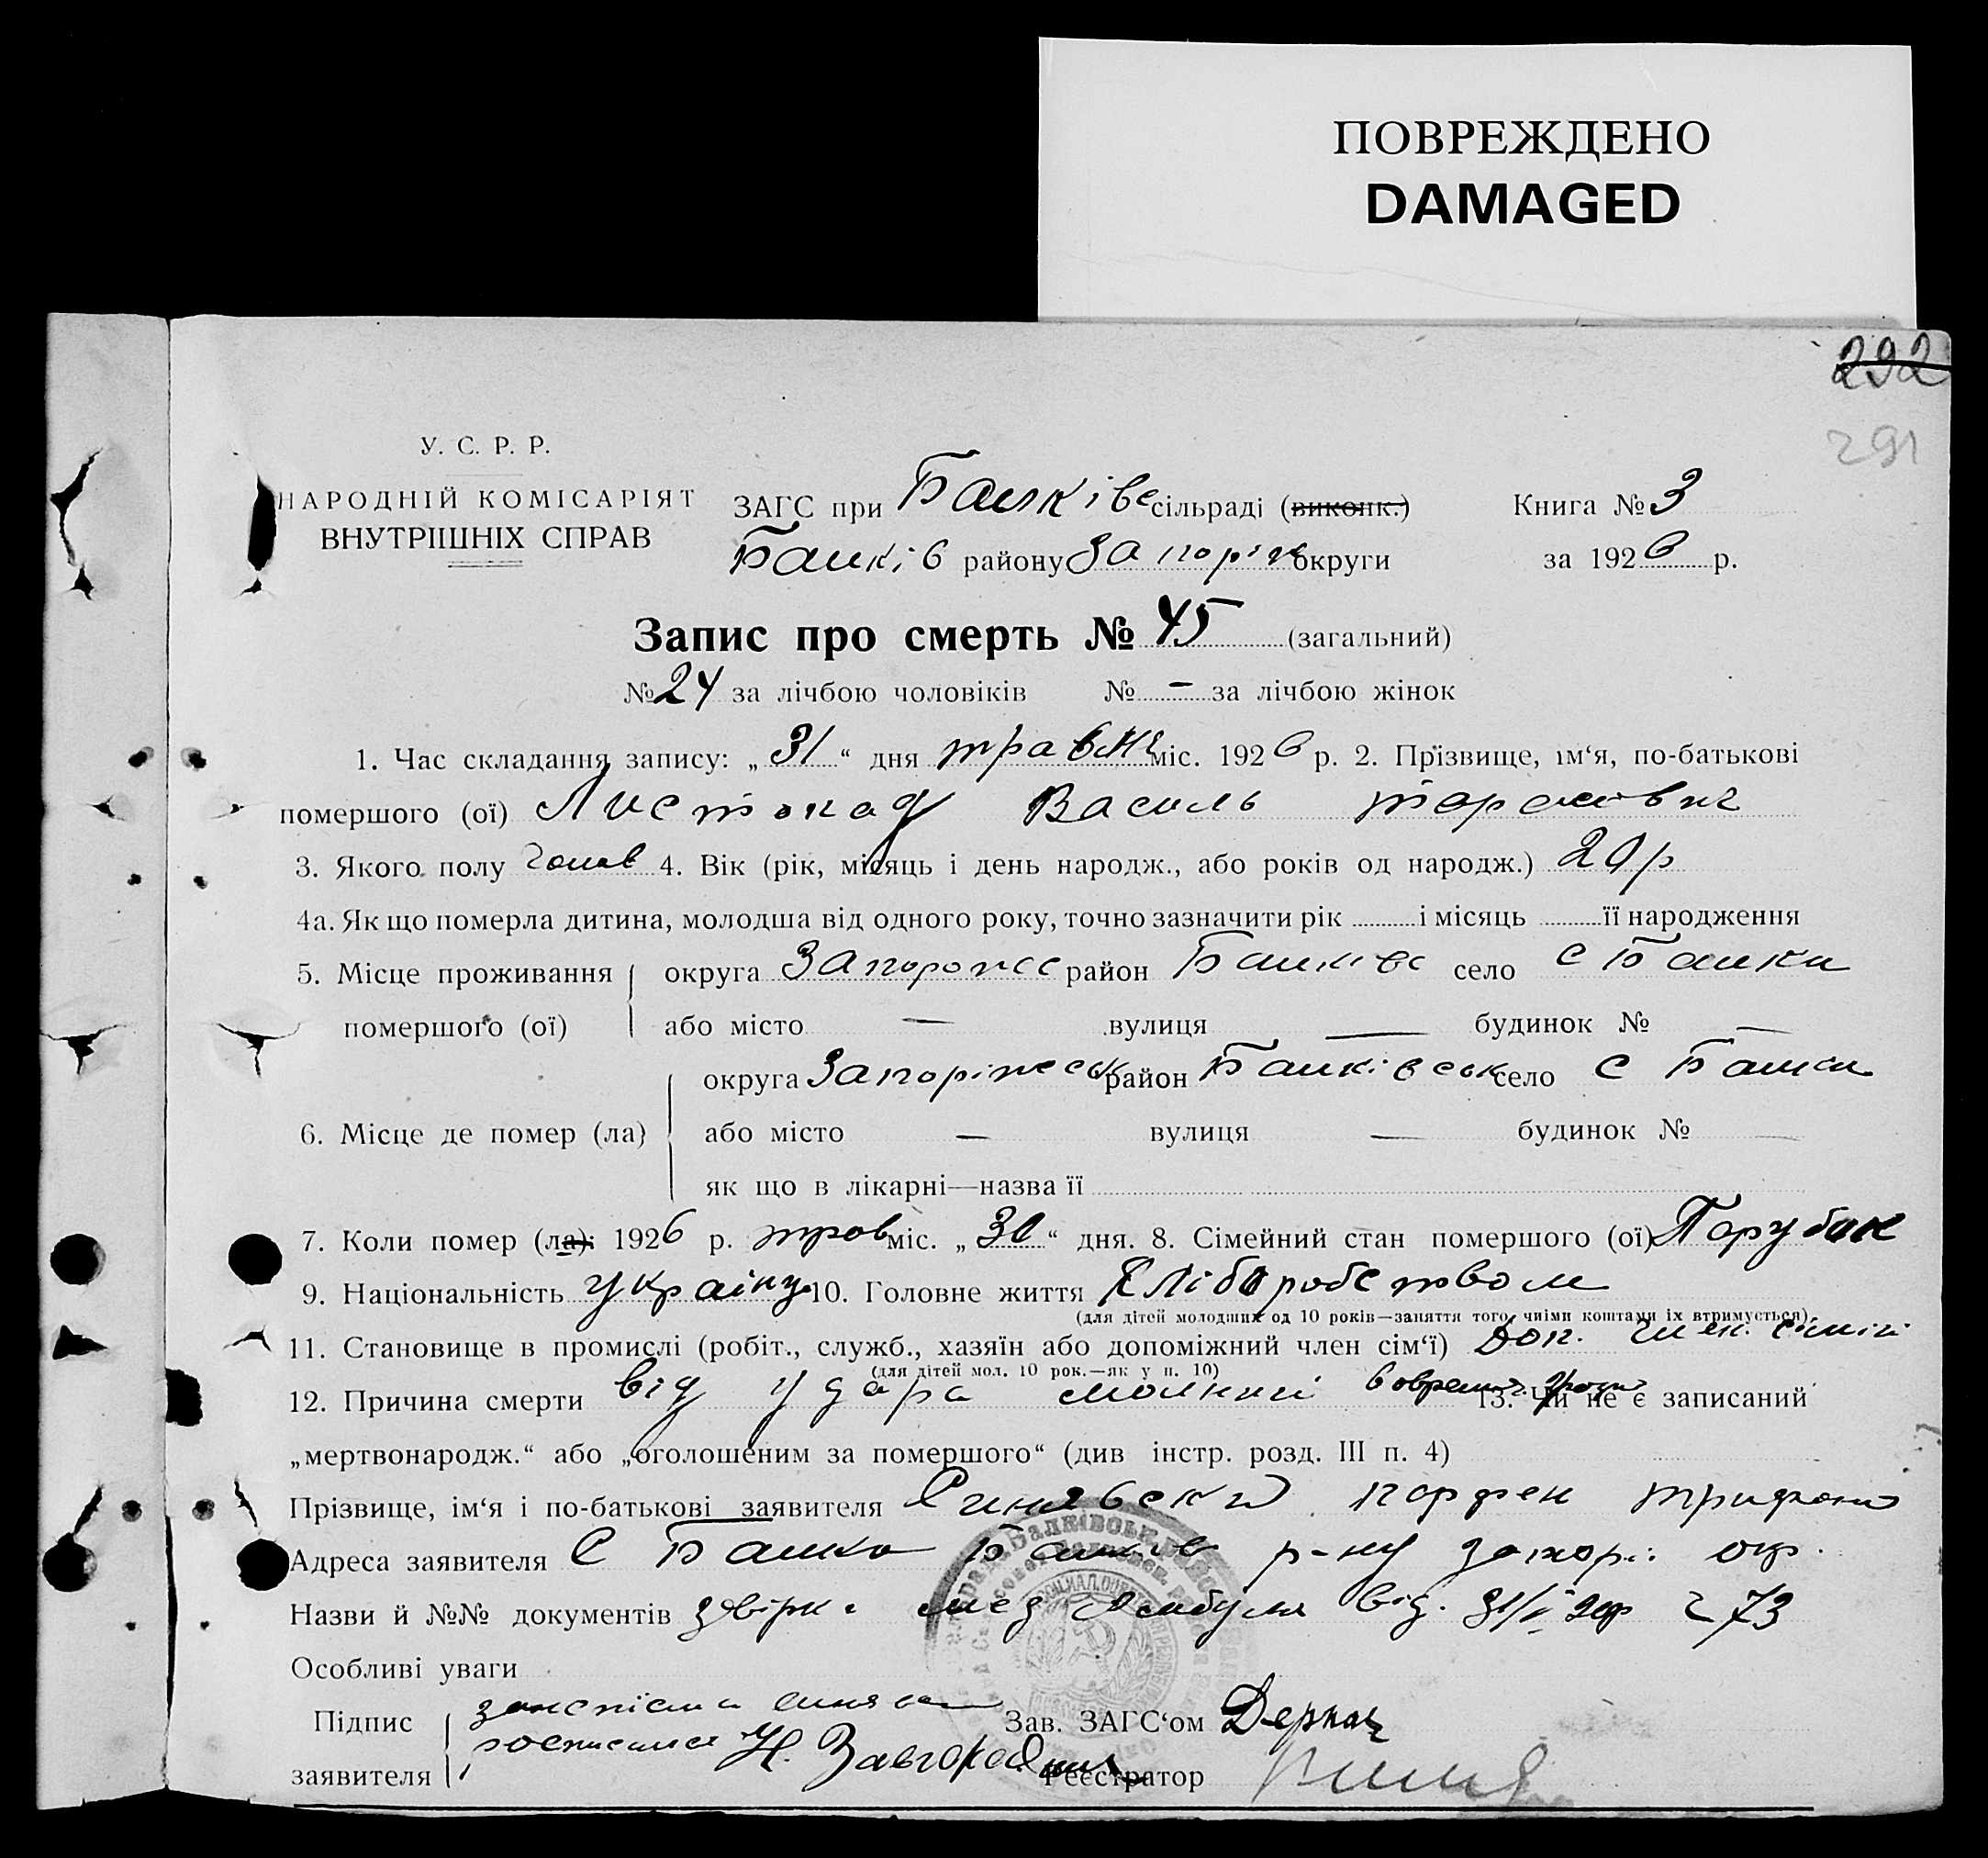 ПОВРЕЖДЕНО
DAMAGED
292
291
У. С. Р. Р.
НАРОДНІЙ КОМІСАРІЯТ
ВНУТРІШНІХ СПРАВ
ЗАГС при Балківс сільраді (виконк.) Книга № 3
Балків району Запоріж округи за 1926 р.
Запис про смерть № 45 (загальний)
№ 24 за лічбою чоловіків № — за лічбою жінок
1. Час складання запису: „31“ дня травня міс. 1926 р. 2. Прізвище, ім‘я, по-батькові
помершого (ої) Листопад Василь
3. Якого полу чолов 4. Вік (рік, місяць і день народж., або років од народж.) 20 р
4а. Як що померла дитина, молодша від одного року, точно зазначити рік і місяць її народження
5. Місце проживання помершого (ої) округа район Балківс село с Балки
або місто — вулиця — будинок № —
6. Місце де помер (ла) округа Запоріжськ район Балківськ село с Балки
або місто — вулиця — будинок № —
як що в лікарні—назва її
7. Коли помер (ла): 1926 р. трав міс. „30“ дня. 8. Сімейний стан помершого (ої) Парубок
9. Національність україн 10. Головне життя Хліборобством
(для дітей молодших од 10 років—заняття того, чиїми коштами їх втримується).
11. Становище в промислі (робіт., служб., хазяїн або допоміжний член сім‘ї) Доп. член. сімії
(для дітей мол. 10 рок.—як у п. 10)
12. Причина смерти від удара молнии вовремя грози 13. Чи не є записаний
„мертвонародж.“ або „оголошеним за помершого“ (див інстр. розд. III п. 4)
Прізвище, ім‘я і по-батькові заявителя Синявский парфен трифоно
Адреса заявителя с Балки Балків р-ну запорі окр.
Назви й №№ документів мед Амбул від. 31/V 26р ч 73
Особливі уваги
Підпис заявителя Н. Завгородний
Зав. ЗАГС‘ом Деркач
Реєстратор